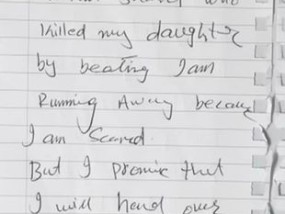 killed my daughter
by beating I am
Running Away because
I am Scared.
But I promise that
I will hand over